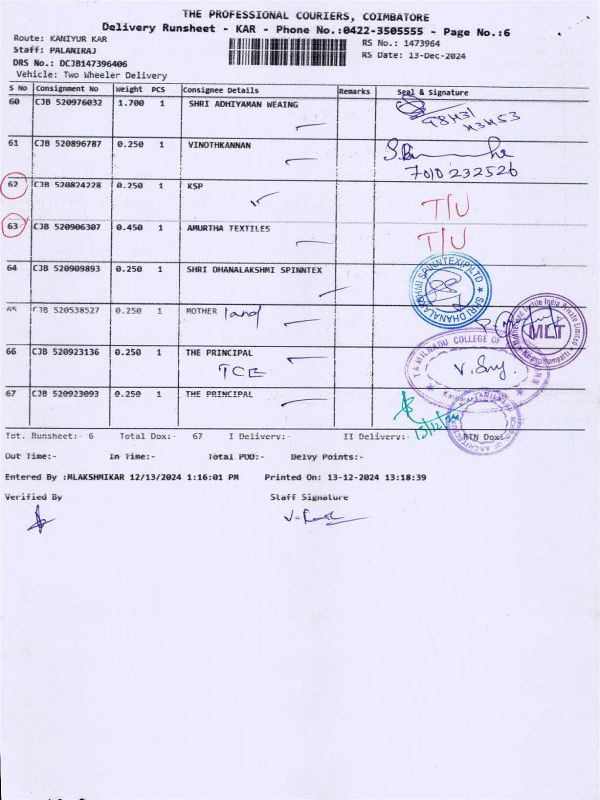 THE PROFESSIONAL COURIERS, COIMBATORE
Delivery Runsheet - KAR - Phone No.:0422-3505555 - Page No.:6
Route: KANIYUR KAR
RS No.: 1473964
Staff: PALANIRAJ
RS Date: 13-Dec-2024
DRS No.: DCJB147396406
Vehicle: Two Wheeler Delivery
S No Consignment No Weight PCS Consignee Details Remarks Seal & Signature
60 CJB 520976032 1.700 1 SHRI ADHIYAMAN WEAING
61 CJB 520896787 0.250 1 VINOTHKANNAN
7010232526
62 CJB 520824228 0.250 1 KSP T/U
63 CJB 520906307 0.450 1 AMURTHA TEXTILES T/U
64 CJB 520909893 0.250 1 SHRI DHANALAKSHMI SPINNTEX
SHRI DHANALAKSHMI SPINNTEX(P)LTD
65 CJB 520538527 0.250 1 MOTHER land
MLT
66 CJB 520923136 0.250 1 THE PRINCIPAL
TCE
TAMILNADU COLLEGE OF
67 CJB 520923093 0.250 1 THE PRINCIPAL
Tot. Runsheet:- 6 Total Dox:- 67 I Delivery:- II Delivery:- RTN Dox:-
Out Time:- In Time:- Total POD:- Delvy Points:-
Entered By :MLAKSHMIKAR 12/13/2024 1:16:01 PM Printed On: 13-12-2024 13:18:39
Verified By Staff Signature